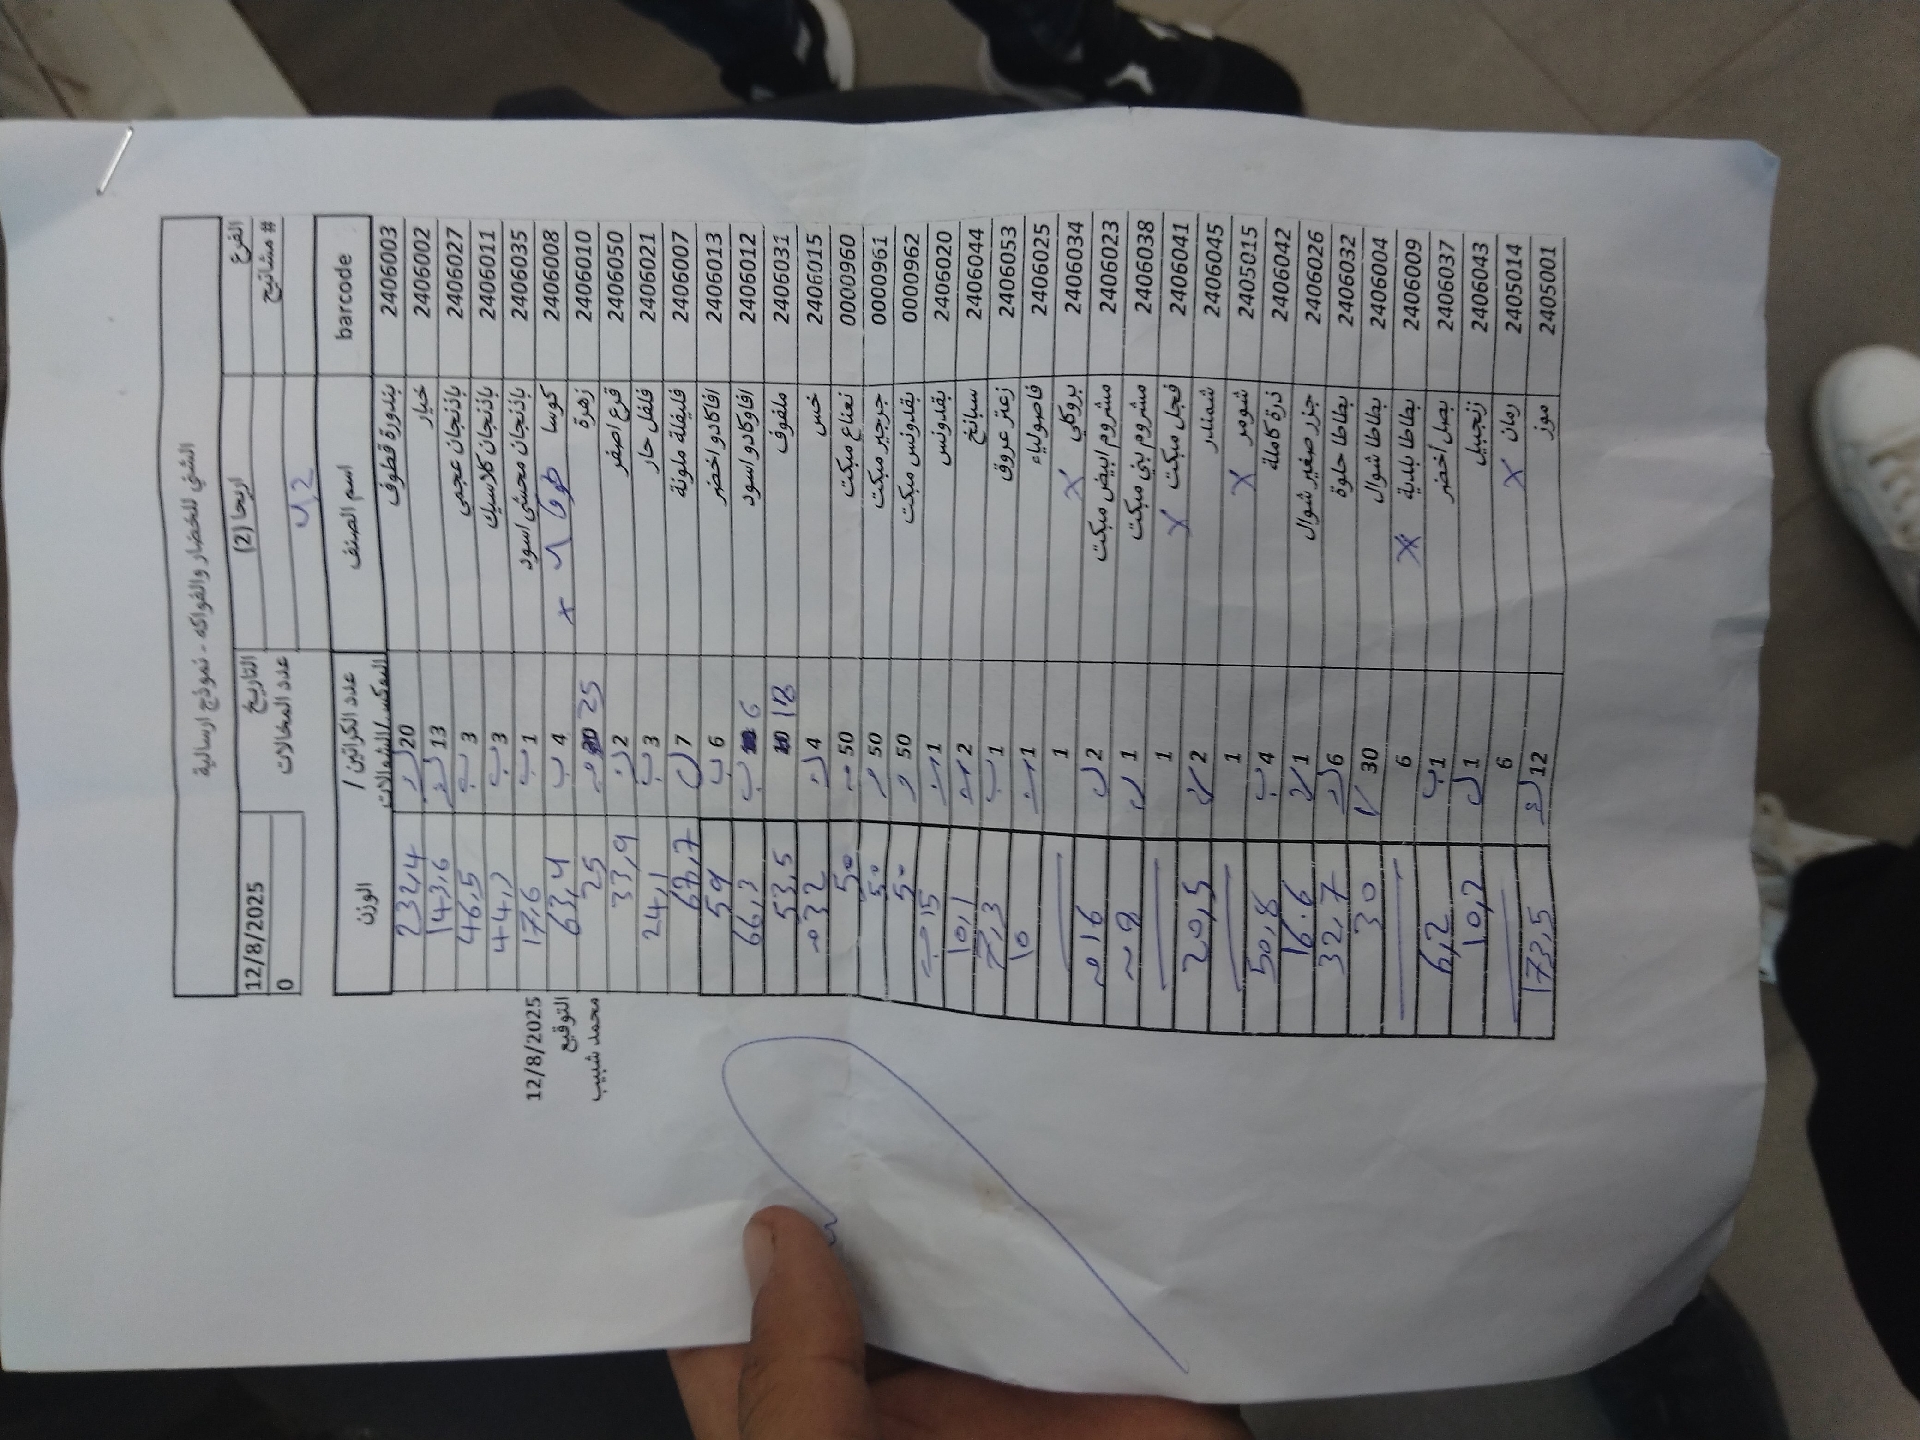 الشني للخضار والفواكه - نموذج ارسالية
الفرع اريحا (2) التاريخ 12/8/2025
# مشاتيح عدد المخالات 0
barcode اسم الصنف عدد الكراتين / البوكس/الشوالات الوزن
2406003 بندورة قطوف 20 232,4
2406002 خيار 13 143,6
2406027 باذنجان عجمي 3 46,5
2406011 باذنجان كلاسيك 3 44,2
2406035 باذنجان محشي اسود 1 17,6
2406008 كوسا x 4 63,4
2406010 زهرة 25 25
2406050 قرع اصفر 2 33,9
2406021 فلفل حار 3 24,1
2406007 فليفلة ملونة 7 67,7
2406013 افاكادو اخضر 6 59
2406012 افاوكادو اسود 6 66,2
2406031 ملفوف 18 53,5
2406015 خس 4 32
0000960 نعناع مبكت 50 50
0000961 جرجير مبكت 50 50
0000962 بقدونس مبكت 50 50
2406020 بقدونس 1 15
2406044 سبانخ 2 10,1
2406053 زعتر عروق 1 7,3
2406025 فاصولياء 1 10
2406034 بروكلي x 1
2406023 مشروم ابيض مبكت 2 16
2406038 مشروم بني مبكت 1 8
2406041 فجل مبكت x 1
2406045 شمندر 2 20,5
2405015 شومر x 1
2406042 ذرة كاملة 4 50,8
2406026 جزر صغير شوال 1 16.6
2406032 بطاطا حلوة 6 32,7
2406004 بطاطا شوال 30 30
2406009 بطاطا بلدية x 6
2406037 بصل اخضر 1 6,2
2406043 زنجبيل 1 10,2
2405014 رمان x 6
2405001 موز 12 173,5
12/8/2025
التوقيع
محمد شبيب